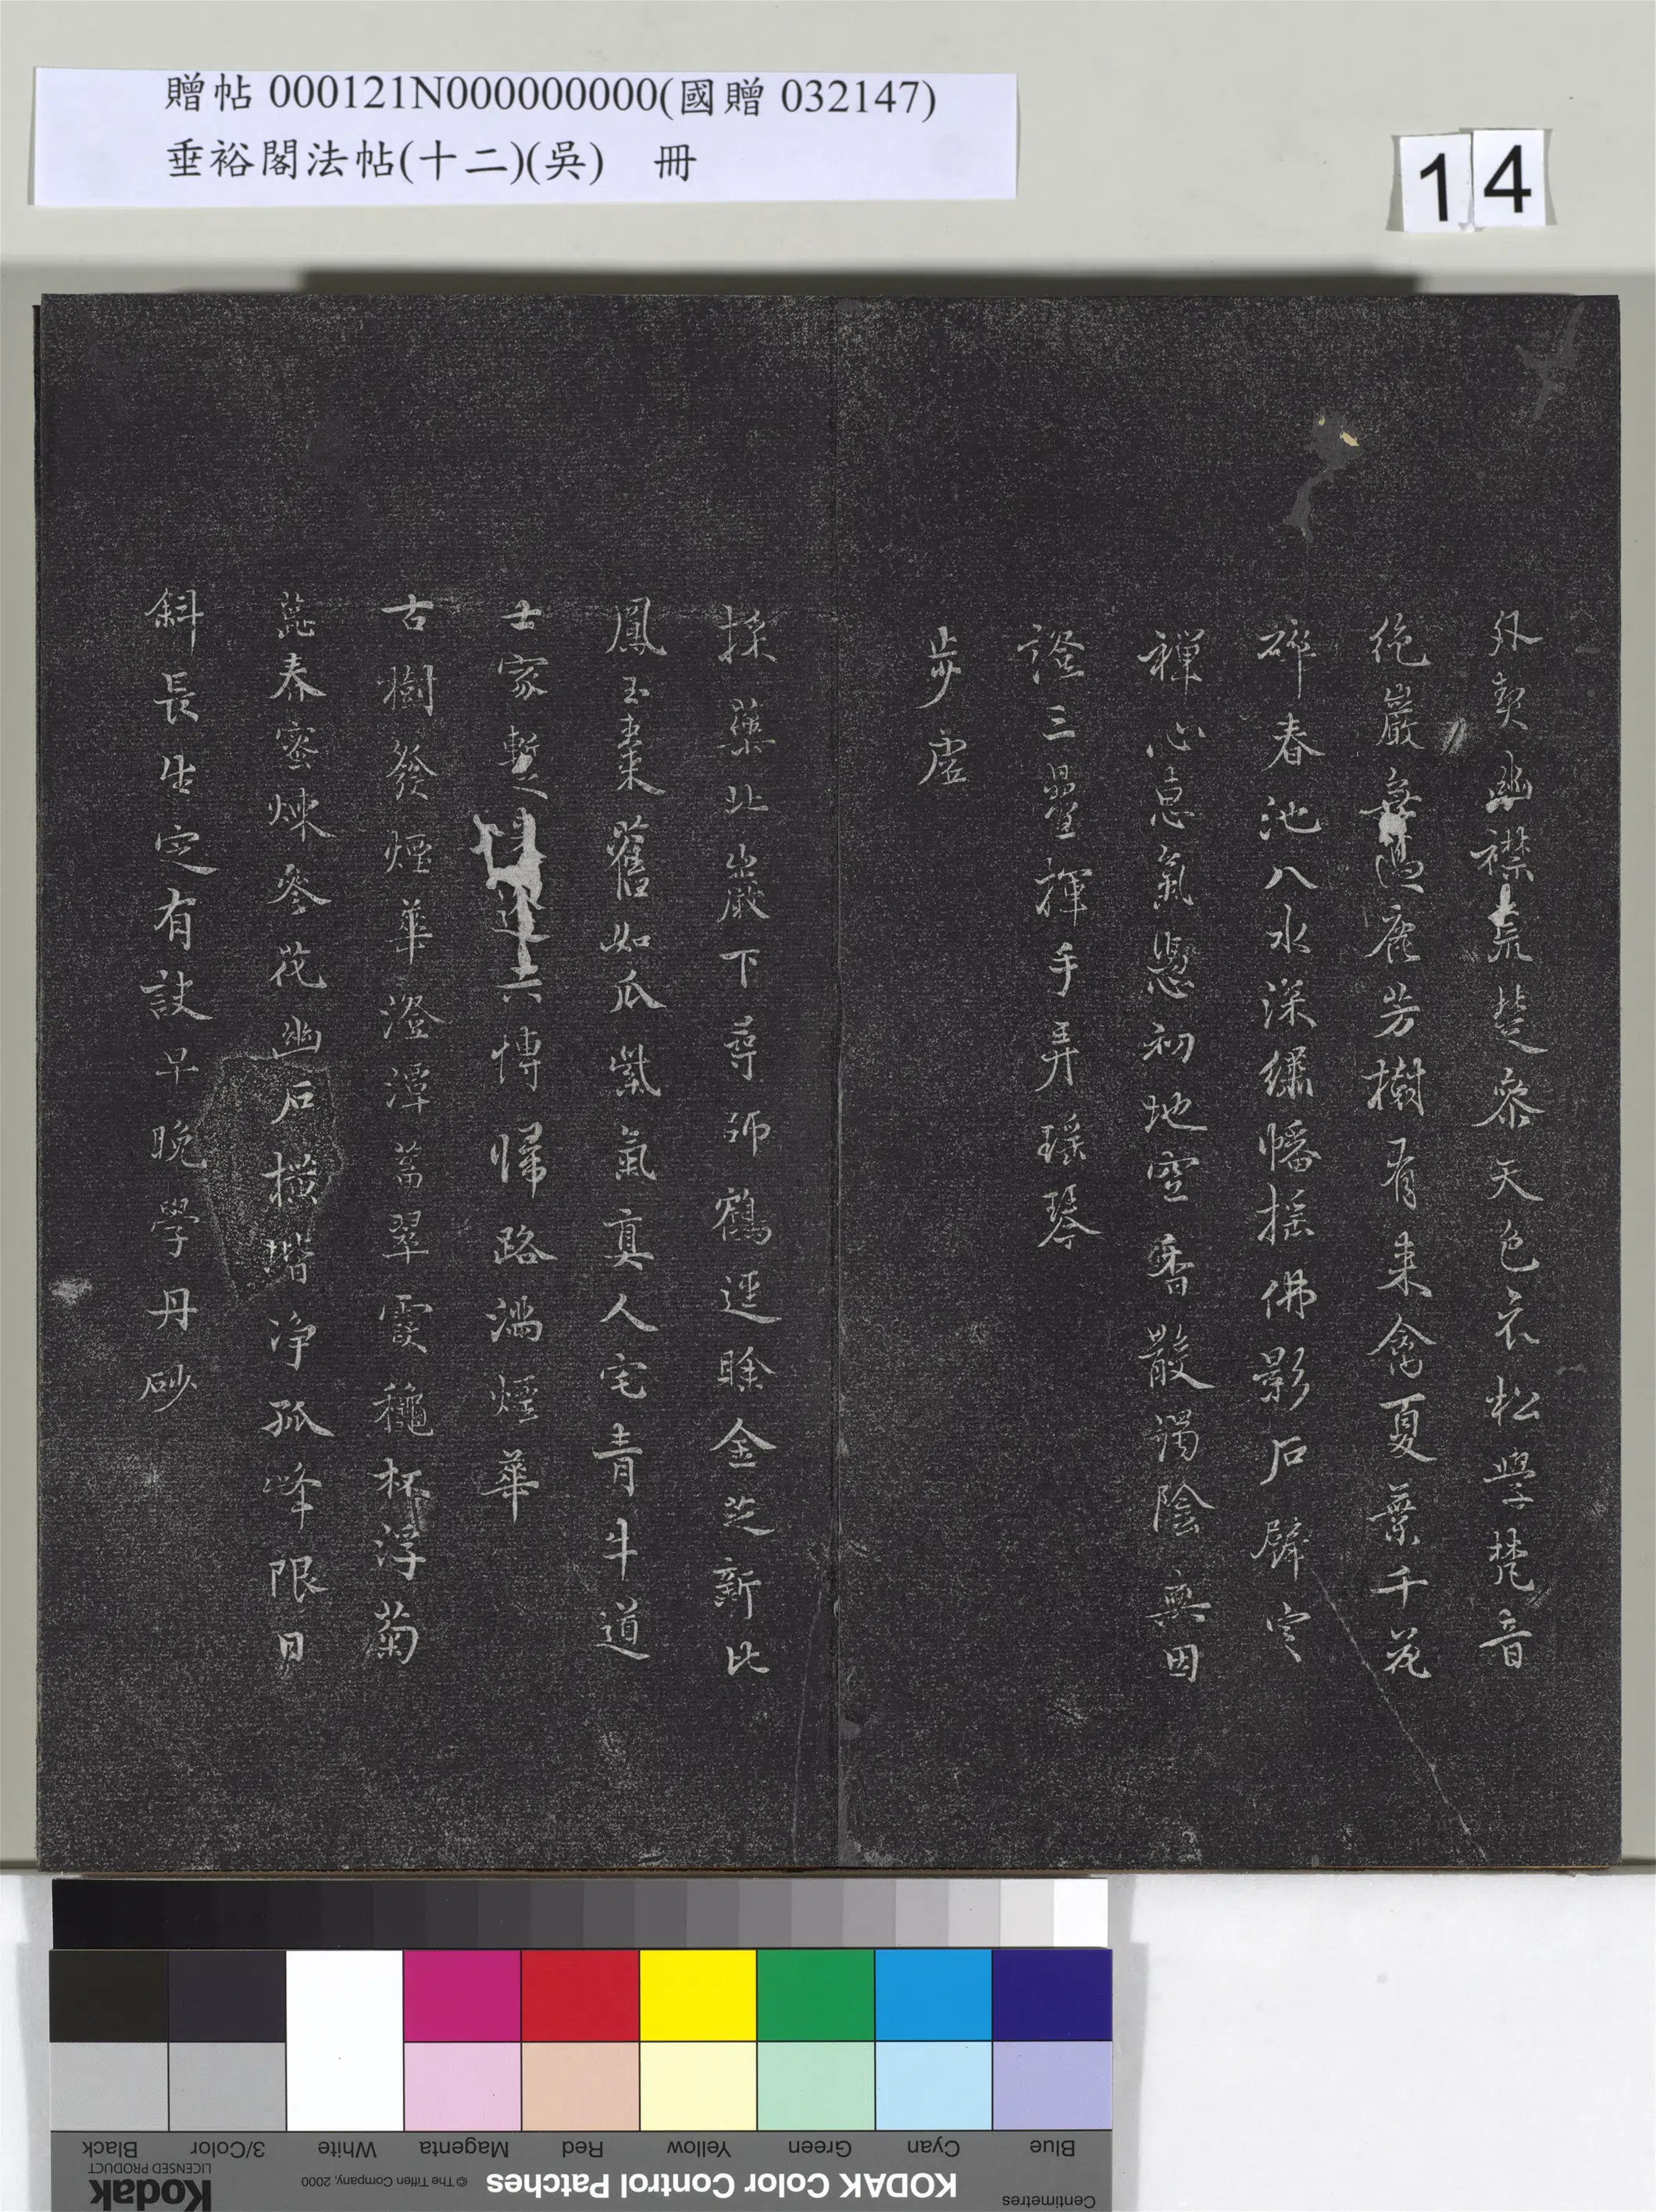 贈帖 000121N000000000(國贈 032147)
垂裕閣法帖(十二)(吳) 冊
14
外契幽襟荒楚參天色衣松學梵音
絶巖無過鹿芳樹有来禽夏葉千花
碎春池八水深繡幡揺佛影石壁定
禪心息氣興初地空香散濁陰無因
證三曡揮手弄瑶琴
歩虛
採藥北巖下尋師鶴逕賒金芝新比
鳳玉棗舊如瓜紫氣真人宅青牛道
士家暫六博歸路滿煙華
古樹發煙華澄潭蓄翠霞杯浮菊
蕋春蜜煉參花幽石横堦净孤峰限日
斜長生定有訣早晚學丹砂
Black
3/Color
White
Magenta
Red
Yellow
Green
Cyan
Blue
Kodak
LICENSED PRODUCT
© The Tiffen Company, 2000
KODAK Color Control Patches
Centimetres